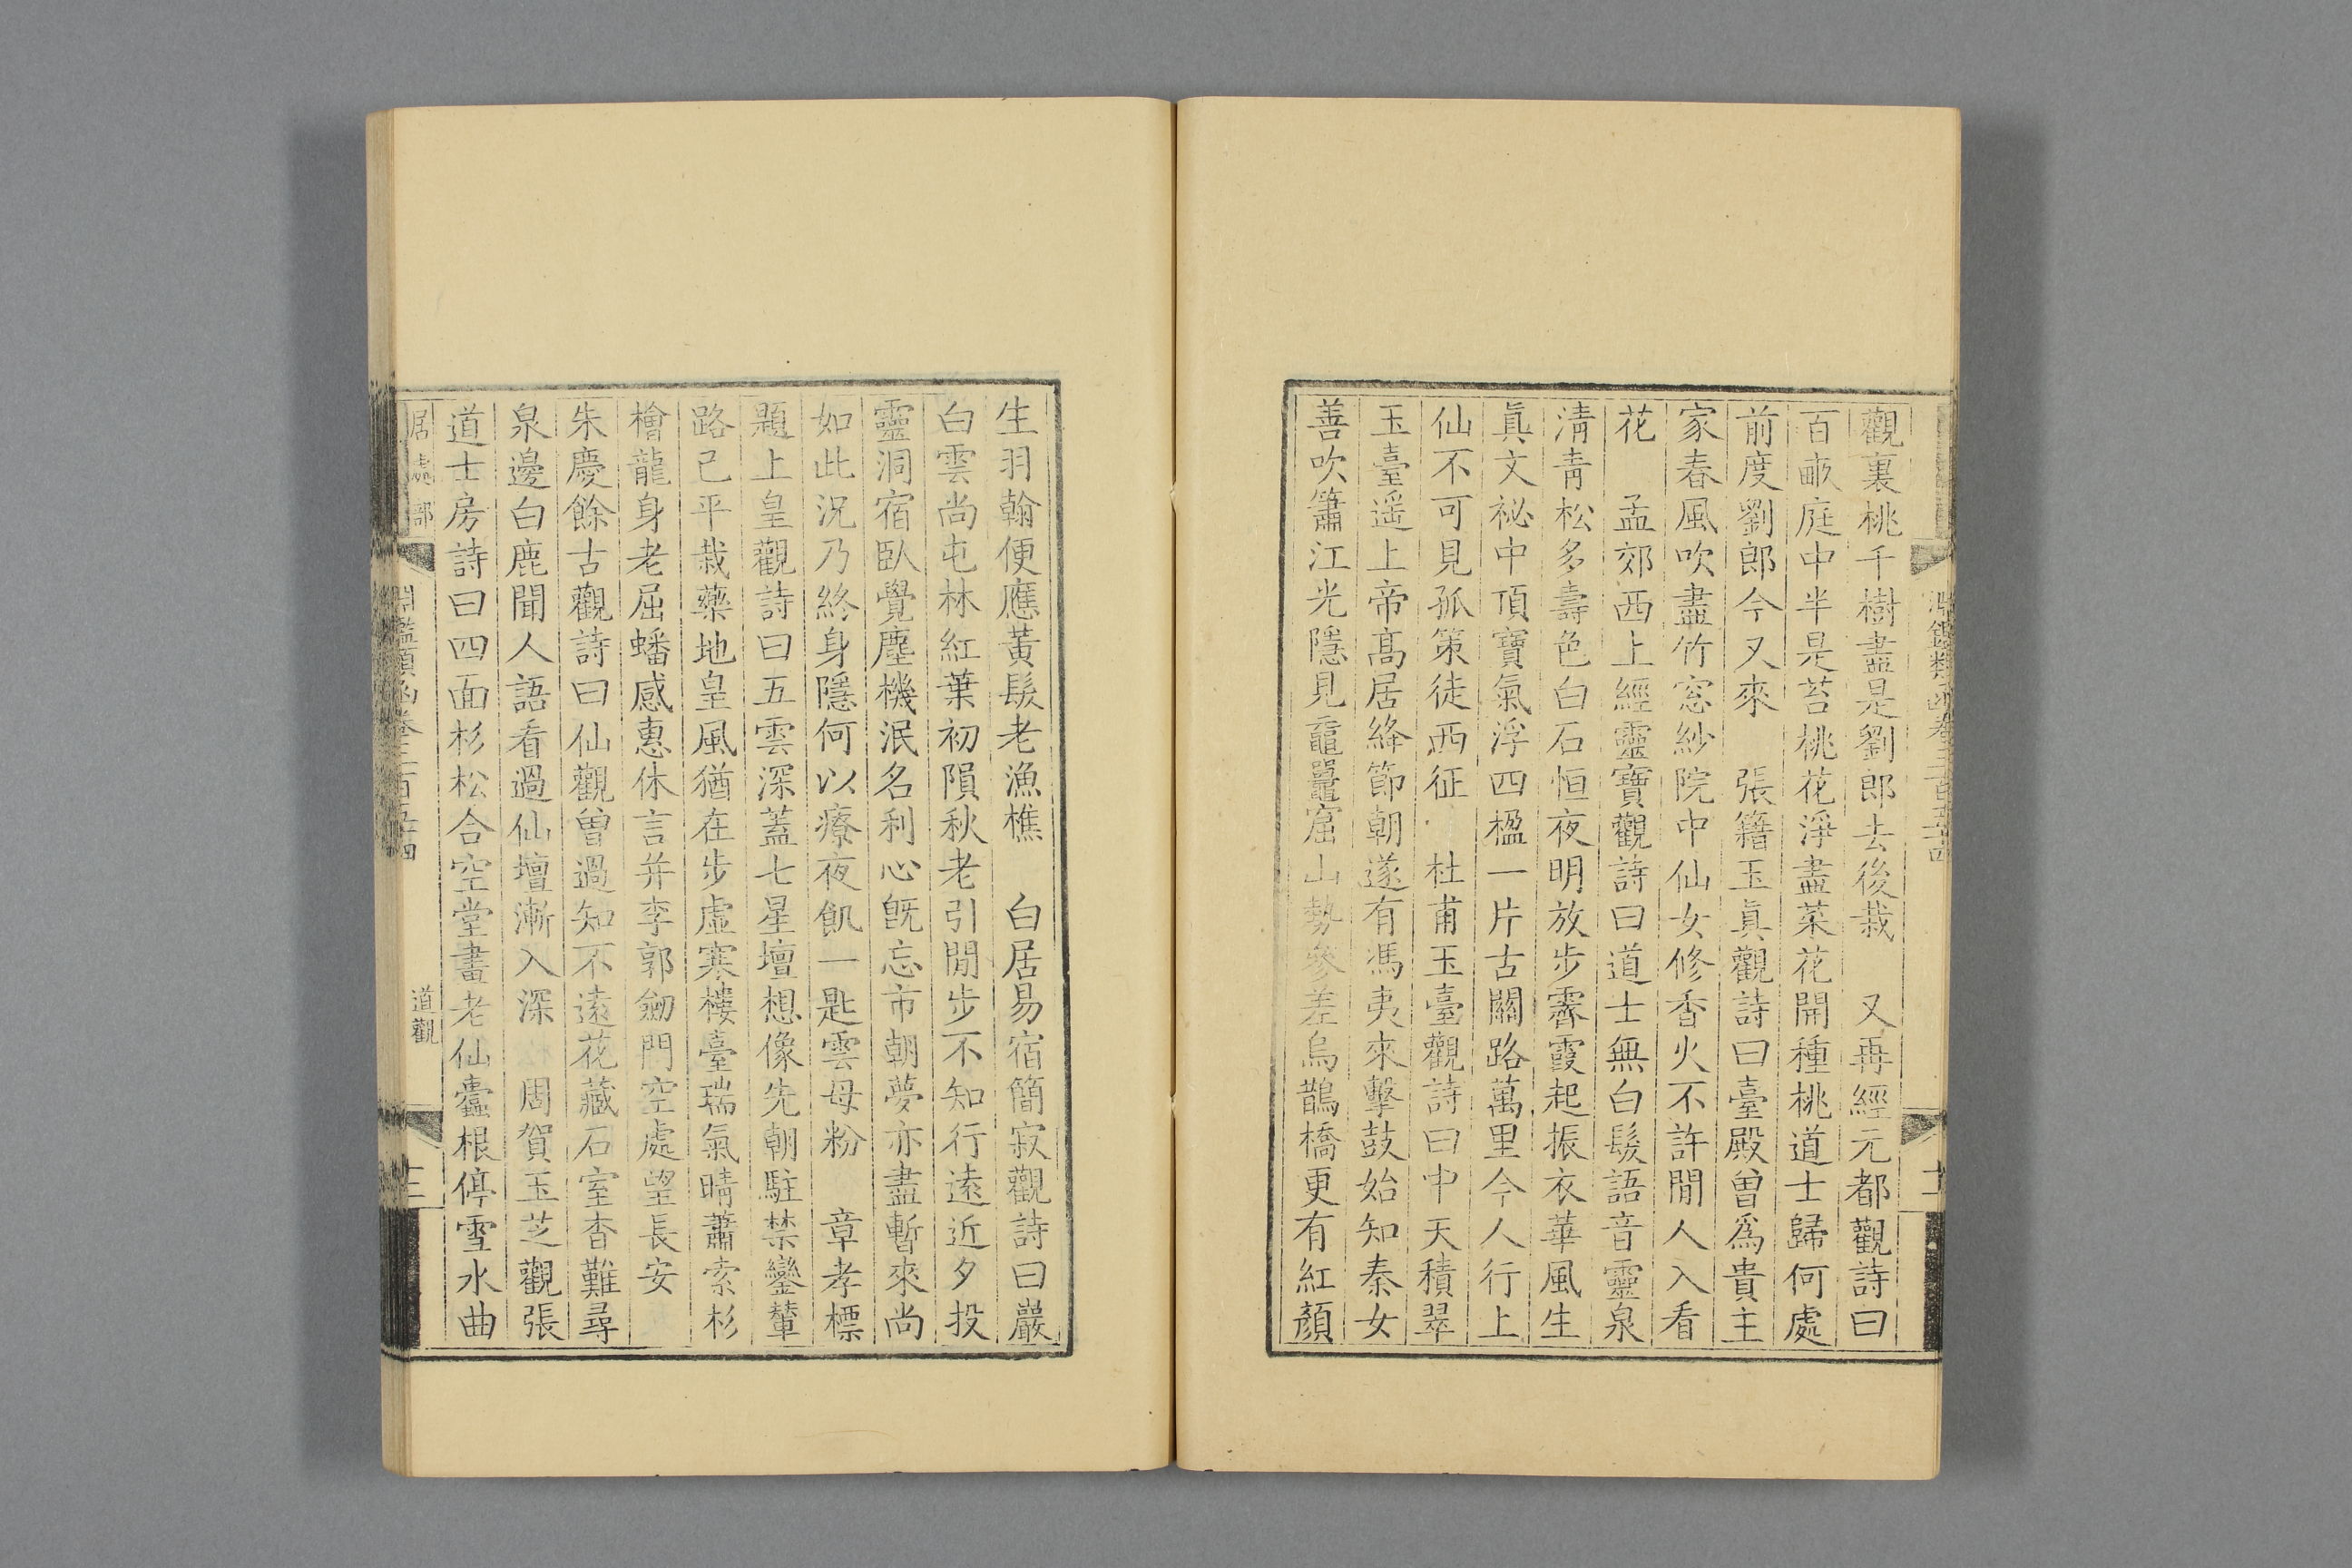 觀裏桃千樹盡是劉郎去後栽　又再經元都觀詩曰
百畝庭中半是苔桃花淨盡菜花開種桃道士歸何處
前度劉郎今又來　張籍玉眞觀詩曰臺殿曾爲貴主
家春風吹盡竹窓紗院中仙女修香火不許閒人入看
花　孟郊西上經靈寶觀詩曰道士無白髮語音靈泉
淸靑松多壽色白石恒夜明放步霽霞起振衣華風生
眞文祕中頂寶氣浮四楹一片古關路萬里今人行上
仙不可見孤策徒西征　杜甫玉臺觀詩曰中天積翠
玉臺遥上帝髙居絳節朝遂有馮夷來擊鼓始知秦女
善吹簫江光隱見黿鼉窟山勢參差烏鵲橋更有紅顏
淵鑑類函卷三百五十四
生羽翰便應黃髮老漁樵　白居易宿簡寂觀詩曰巖
白雲尚屯林紅葉初隕秋老引閒步不知行遠近夕投
靈洞宿臥覺塵機泯名利心旣忘市朝夢亦盡暫來尚
如此況乃終身隱何以療夜飢一匙雲母粉　章孝標
題上皇觀詩曰五雲深蓋七星壇想像先朝駐禁鑾輦
路已平栽藥地皇風猶在步虛寒樓臺瑞氣晴蕭索杉
檜龍身老屈蟠感惠休言并李郭劒門空處望長安
朱慶餘古觀詩曰仙觀曾過知不遠花藏石室杳難尋
泉邊白鹿聞人語看過仙壇漸入深　周賀玉芝觀張
道士房詩曰四面杉松合空堂畫老仙蠹根停雪水曲
居處部　淵鑑類函卷三百五十四　道觀　十二